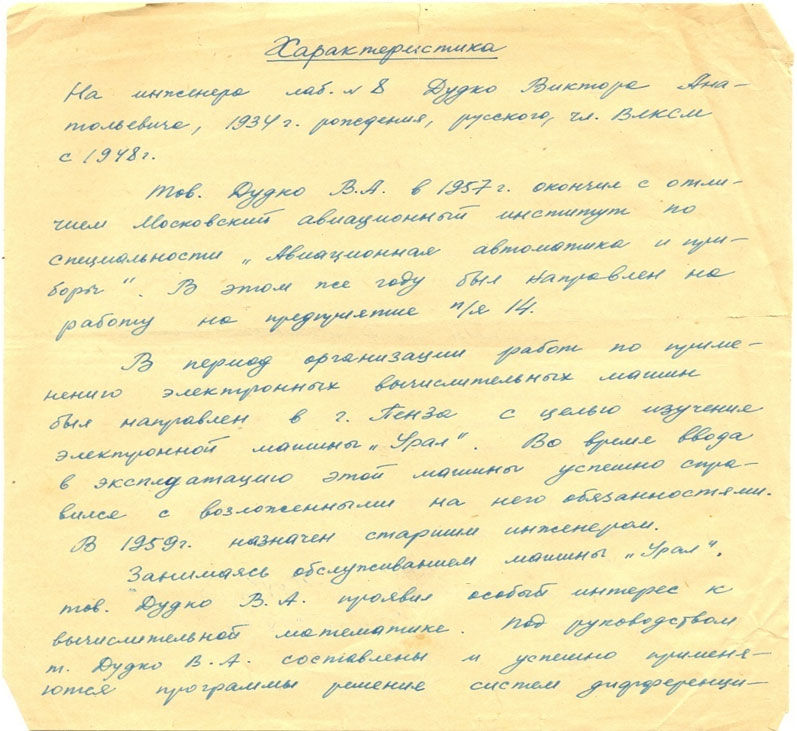 Характеристика
На инженера лаб. N 8 Дудко Виктора Ана-
тольевича, 1934 г. рождения, русского, чл. ВЛКСМ
с 1948г.
Тов. Дудко В.А. в 1957 г. окончил с отли-
чием Московский авиационный институт по
специальности „Авиационная автоматика и при-
боры". В этом же году был направлен на
работу на предприятие п/я 14.
В период организации работ по приме-
нению электронных вычислительных машин
был направлен в г. Пенза с целью изучение
электронной машины „Урал". Во время ввода
в эксплоатацию этой машины успешно спра-
вился с возложенными на него обязанностями.
В 1959г. назначен старшим инженером.
Занимаясь обслуживанием машины „Урал".
тов. Дудко В.А. проявил особый интерес к
вычислительной математике. Под руководством
т. Дудко В.А. составлены и успешно применя-
ются программы решение систем дифференци-